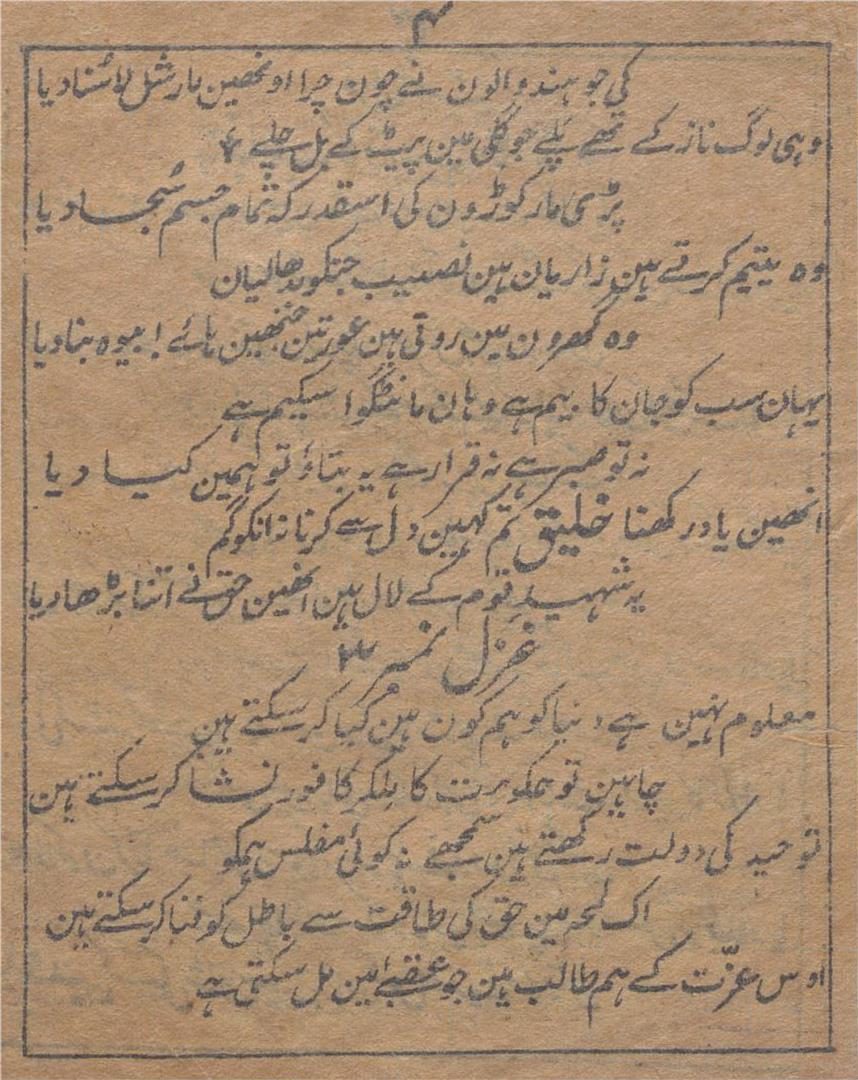 ۴
کی جو ہندوالون نے چون چرا اونھین مارشل لا سُنا دیا
وہی لوگ ناز کے تھے پلے جو گلی مین پیٹ کے بل چلے
پڑی مار کوڑون کی اسقدر کہ تمام جسم سُجا دیا
وہ یتیم کرتے ہین زاریان ہین نصیب جنکو
وہ گھرون مین روتی ہین عورتین جنھین ہائے! بیوہ بنا دیا
یہان سب کو جان کا بیم ہے وہان مانٹگوا سکیم ہے
نہ تو صبر ہے نہ قرار ہے یہ بتاؤ تو ہمین کیا دیا
انھین یاد رکھنا خلیق تم کہین دل سے کرنا نہ انکو گم
یہ شہید قوم کے لال ہین انھین حق نے اتنا بڑھا دیا
غزل نمبر ۳
معلوم نہین ہے دنیا کو ہم کون ہین کیا کر سکتے ہین
چاہین تو حکومت کا ملکر کافور نشا کر سکتے ہین
توحید کی دولت رکھتے ہین سمجھے نہ کوئی مفلس ہمکو
اک لمحہ مین حق کی طاقت سے باطل کو فنا کر سکتے ہین
اوس عزّت کے ہم طالب ہین جو عقبےٰ مین مل سکتی ہے